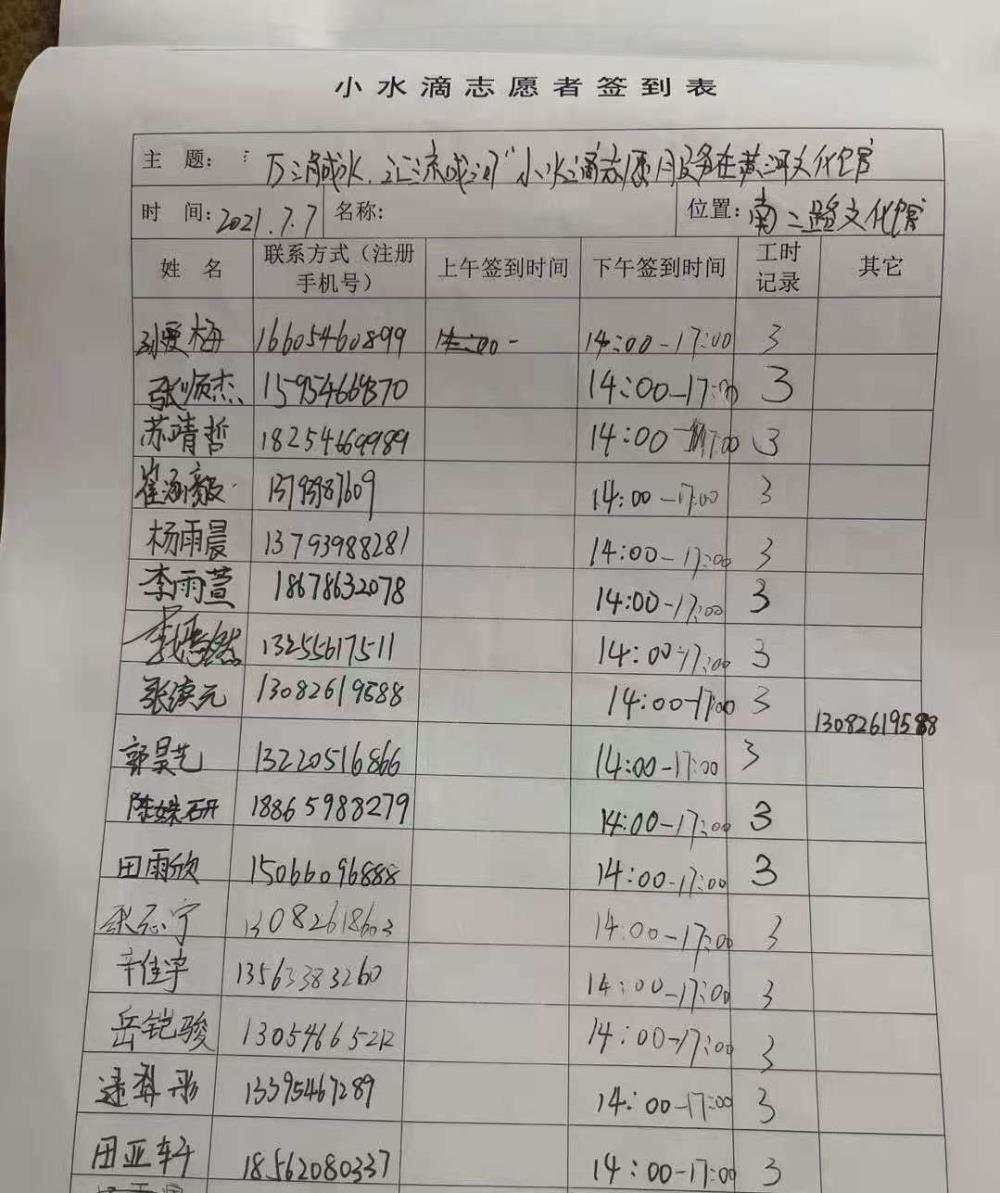 小水滴志愿者签到表
主 题: 万滴成水,汇流成河"小水滴志愿服务在黄河文化馆
时 间: 2021.7.7 名称: 位置: 南二路文化馆
姓 名 联系方式(注册手机号) 上午签到时间 下午签到时间 工时记录 其它
孙爱梅 16605460899 14:00- 14:00-17:00 3
张顺杰 15954669370 14:00-17:00 3
苏靖哲 18254669989 14:00-17:00 3
崔涵毅 13793987609 14:00-17:00 3
杨雨晨 13793988281 14:00-17:00 3
李雨萱 18678632078 14:00-17:00 3
李嫣然 13255617511 14:00-17:00 3
张续元 13082619588 14:00-17:00 3 13082619588
郭昊艺 13220516866 14:00-17:00 3
陈姝研 18865988279 14:00-17:00 3
田雨欣 15066096888 14:00-17:00 3
张志宁 13082618603 14:00-17:00 3
辛佳宇 13563383260 14:00-17:00 3
岳铠骏 13054665212 14:00-17:00 3
13395467289 14:00-17:00 3
田亚轩 18562080337 14:00-17:00 3